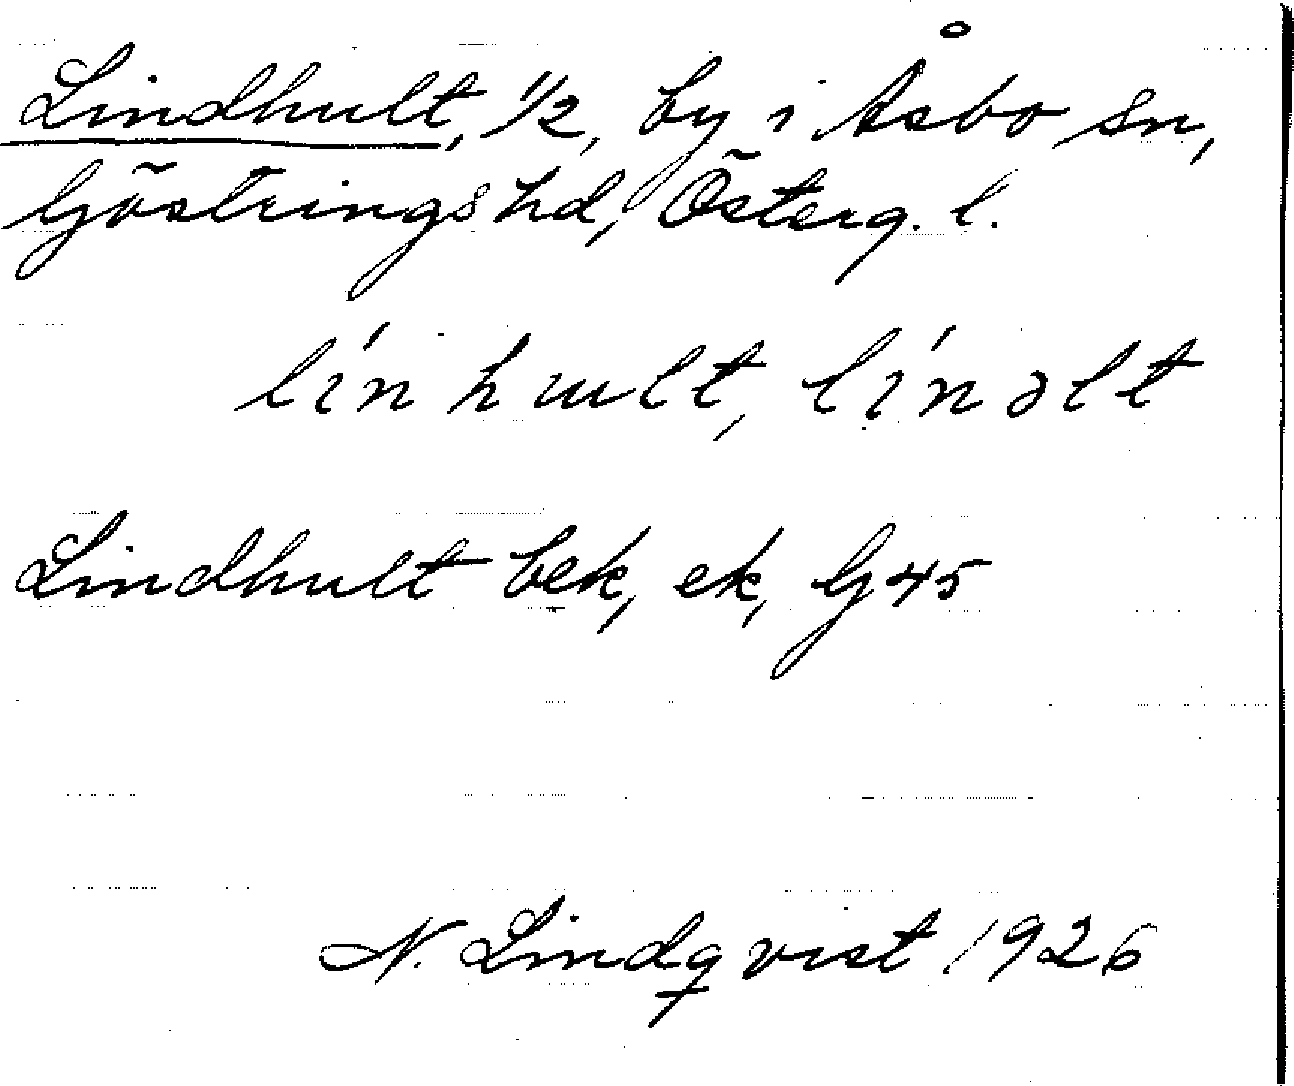 Lindhult, 1/2, by i Åsbo sn,
Göstrings hd, Österg. l.
lín hult, línəlt
Lindhult bek, ek, G 45
N. Lindqvist 1926